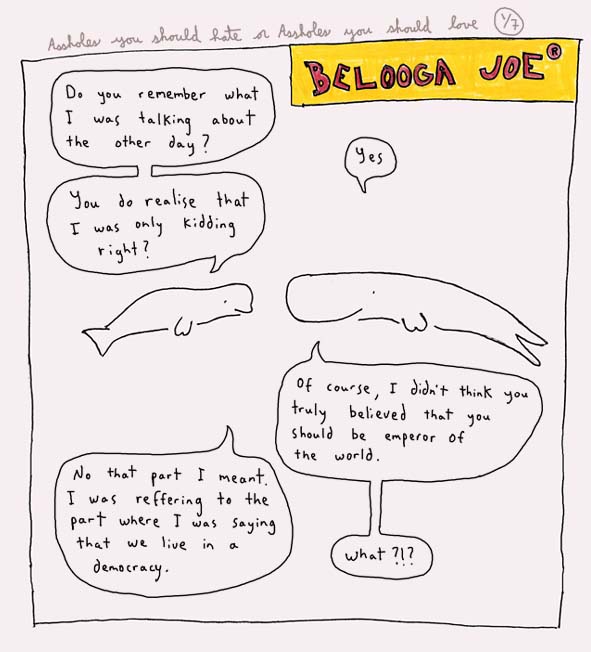 Assholes you should hate or Assholes you should love 1/7
BELOOGA JOE®
Do you remember what
I was talking about
the other day?
Yes
You do realise that
I was only kidding
right?
Of course, I didn't think you
truly believed that you
should be emperor of
the world.
No that part I meant.
I was reffering to the
part where I was saying
that we live in a
democracy.
what?!?